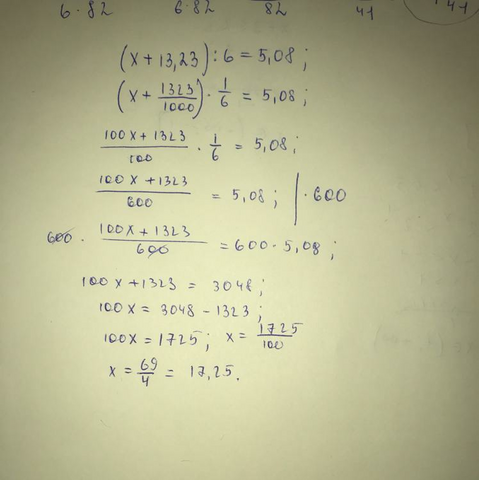 6·82 6·82 82 41 41
(x + 13,23) : 6 = 5,08 ;
(x + 1323/1000) · 1/6 = 5,08 ;
100x + 1323/100 · 1/6 = 5,08 ;
100x + 1323/600 = 5,08 ; | · 600
600 · 100x + 1323/600 = 600 · 5,08 ;
100x + 1323 = 3048 ;
100x = 3048 - 1323 ;
100x = 1725 ; x = 1725/100
x = 69/4 = 17,25.